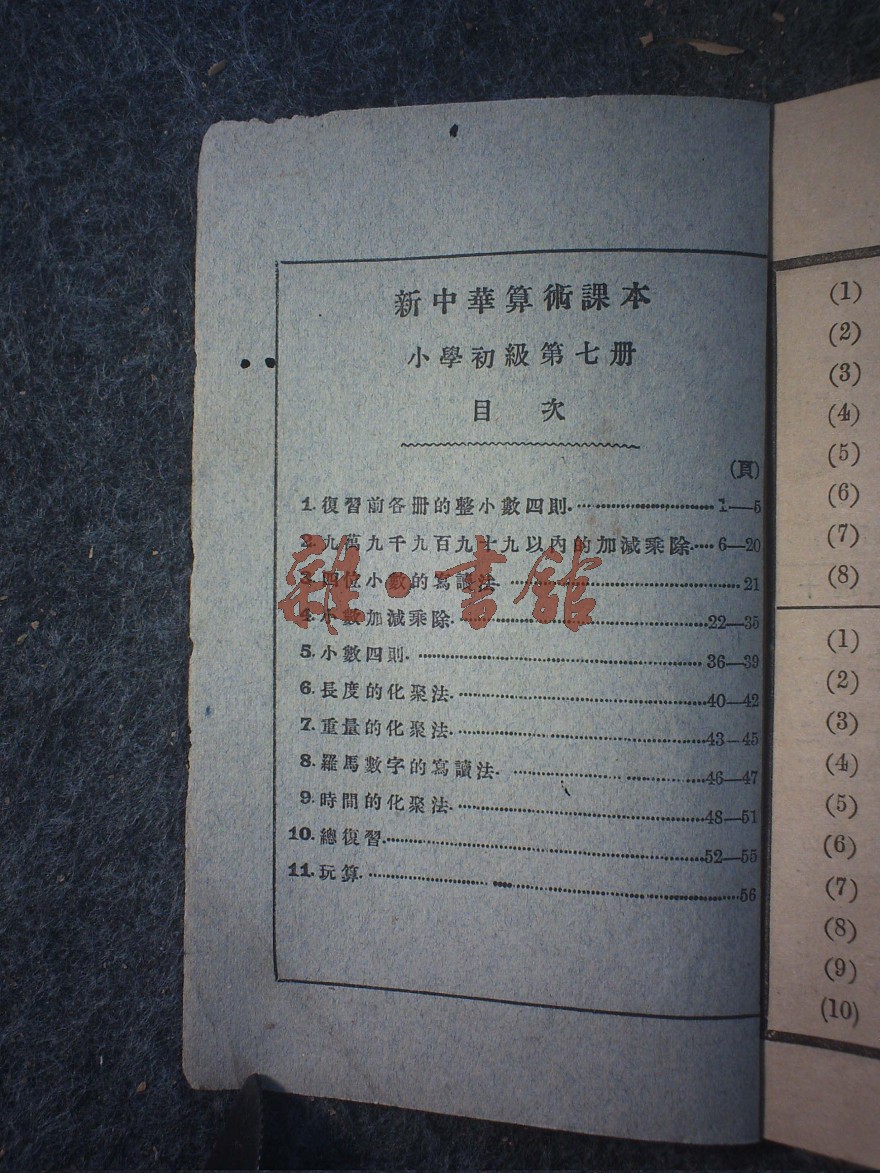 新中華算術課本
小學初級第七册
目 次
(頁)
1. 復習前各册的整小數四則 1—5
2. 九萬九千九百九十九以內的加減乘除 6—20
3. 四位小數的寫讀法 21
4. 小數加減乘除 22—35
5. 小數四則 36—39
6. 長度的化聚法 40—42
7. 重量的化聚法 43—45
8. 羅馬數字的寫讀法 46—47
9. 時間的化聚法 48—51
10. 總復習 52—55
11. 玩算 56
雜·書館
(1)
(2)
(3)
(4)
(5)
(6)
(7)
(8)
(1)
(2)
(3)
(4)
(5)
(6)
(7)
(8)
(9)
(10)